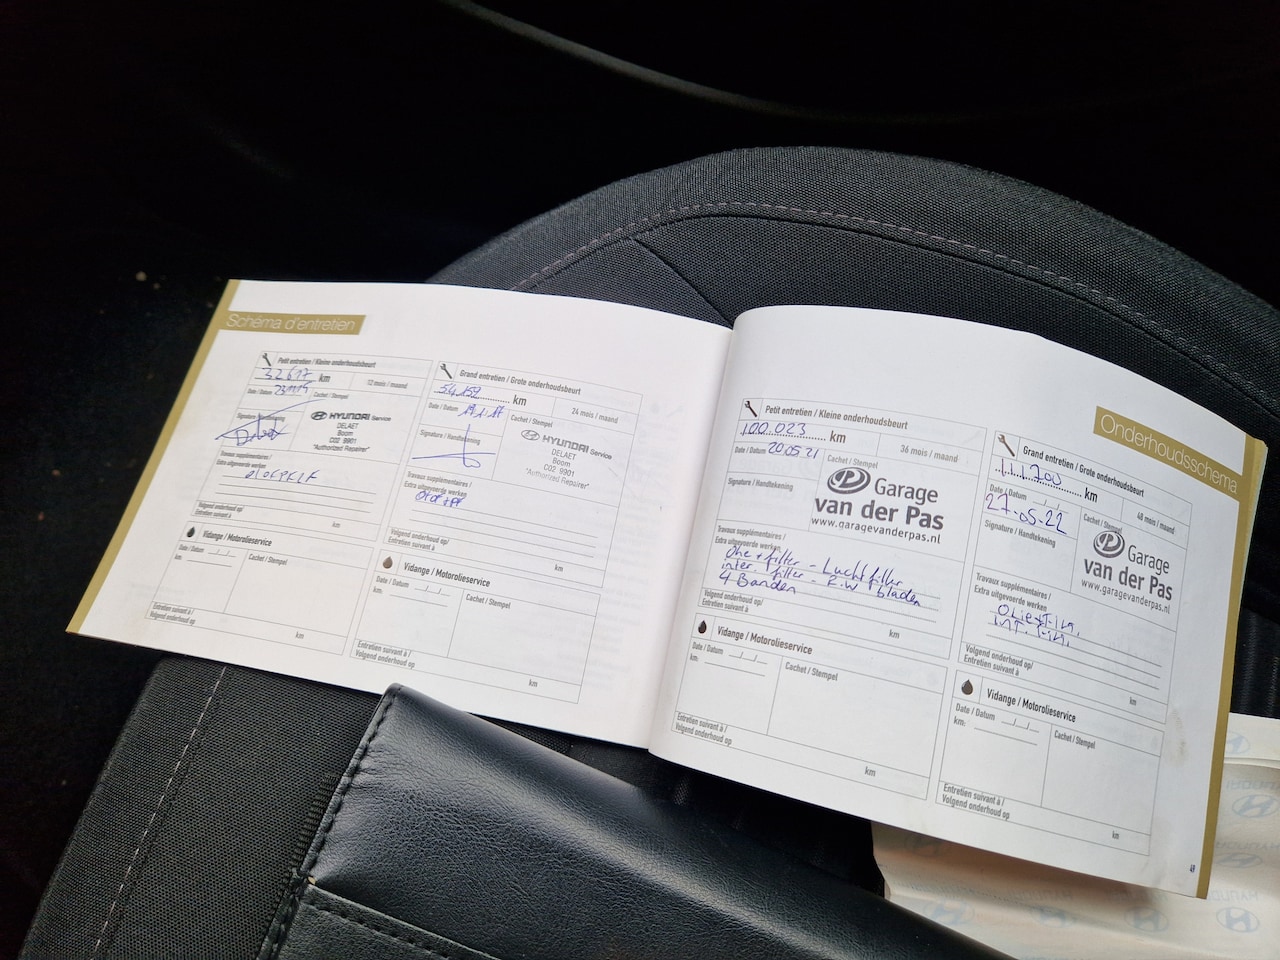 Schéma d'entretien
Petit entretien / Kleine onderhoudsbeurt
32617 km
12 mois / maand
Date / Datum
Cachet / Stempel
Signature / Handtekening
HYUNDAI Service
DELAET
Boom
C02 9901
"Authorized Repairer"
Travaux supplémentaires /
Extra uitgevoerde werken
Volgend onderhoud op/
Entretien suivant à
km
Vidange / Motorolieservice
Date / Datum
Cachet / Stempel
km
Entretien suivant à /
Volgend onderhoud op
km
Grand entretien / Grote onderhoudsbeurt
54.152 km
24 mois / maand
Date / Datum 19.1.17
Cachet / Stempel
Signature / Handtekening
HYUNDAI Service
DELAET
Boom
C02 9901
"Authorized Repairer"
Travaux supplémentaires /
Extra uitgevoerde werken
Volgend onderhoud op/
Entretien suivant à
km
Vidange / Motorolieservice
Date / Datum
Cachet / Stempel
km:
Entretien suivant à /
Volgend onderhoud op
km
Onderhoudsschema
Petit entretien / Kleine onderhoudsbeurt
100.023 km
36 mois / maand
Date / Datum 20.05.21
Cachet / Stempel
Signature / Handtekening
Garage
van der Pas
www.garagevanderpas.nl
Travaux supplémentaires /
Extra uitgevoerde werken
Olie + filter - Luchtfilter
inter. filter - R-W bladen
4 Banden
Volgend onderhoud op/
Entretien suivant à
km
Vidange / Motorolieservice
Date / Datum
Cachet / Stempel
km:
Entretien suivant à /
Volgend onderhoud op
km
Grand entretien / Grote onderhoudsbeurt
111700 km
48 mois / maand
Date / Datum
27-05-22
Cachet / Stempel
Signature / Handtekening
Garage
van der Pas
www.garagevanderpas.nl
Travaux supplémentaires /
Extra uitgevoerde werken
Volgend onderhoud op/
Entretien suivant à
km
Vidange / Motorolieservice
Date / Datum
Cachet / Stempel
km:
Entretien suivant à /
Volgend onderhoud op
km